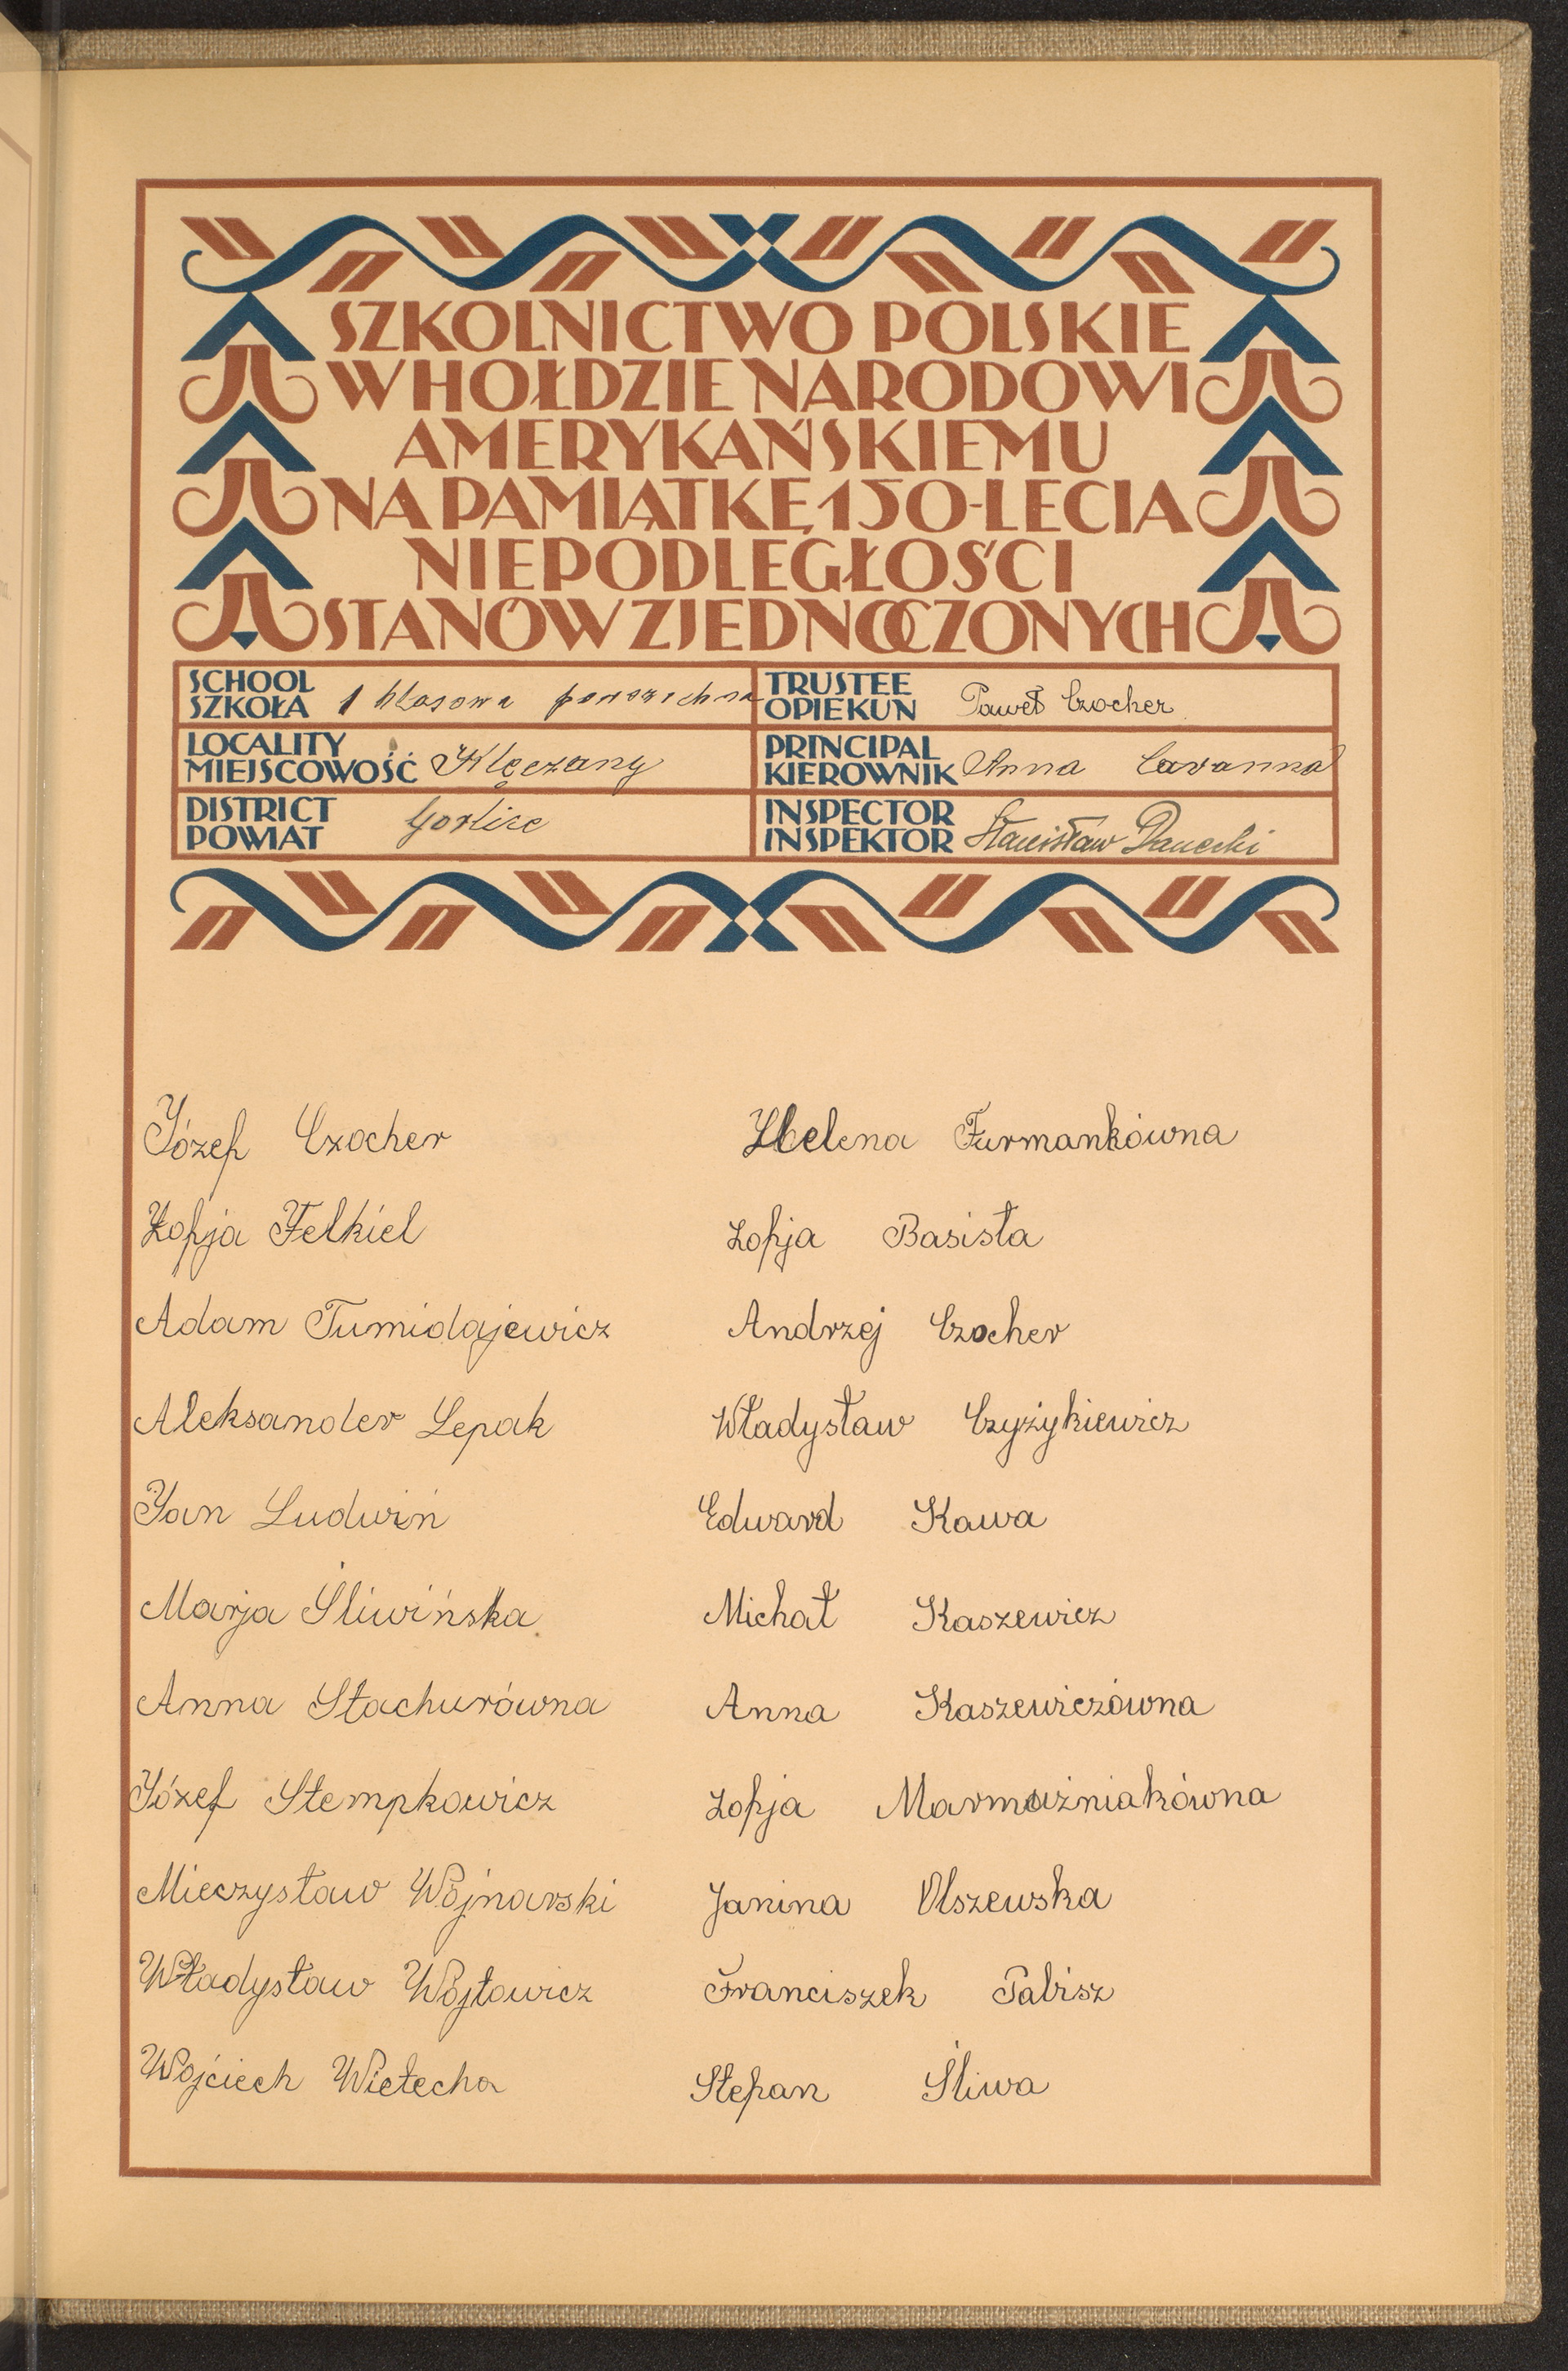 SZKOLNICTWO POLSKIE
W HOŁDZIE NARODOWI
AMERYKAŃSKIEMU
NA PAMIĄTKĘ 150-LECIA
NIEPODLEGŁOŚCI
STANÓW ZJEDNOCZONYCH
SCHOOL
SZKOŁA 1 klasowa powszechna
TRUSTEE
OPIEKUN Paweł Czocher
LOCALITY
MIEJSCOWOŚĆ Klęczany
PRINCIPAL
KIEROWNIK Anna Cavanna
DISTRICT
POWIAT Gorlice
INSPECTOR
INSPEKTOR Stanisław Danecki
Józef Czocher
Zofja Felkiel
Adam Tumidajewicz
Aleksander Lepak
Jan Ludwin
Marja Śliwińska
Anna Stachurówna
Józef Stempkowicz
Mieczysław Wojnarski
Władysław Wójtowicz
Wojciech Wietecha
Helena Furmankówna
Zofja Basista
Andrzej Czocher
Władysław Czyżykiewicz
Edward Kawa
Michał Kaszewicz
Anna Kaszewiczówna
Zofja Marmuźniakówna
Janina Olszewska
Franciszek Tabisz
Stefan Śliwa